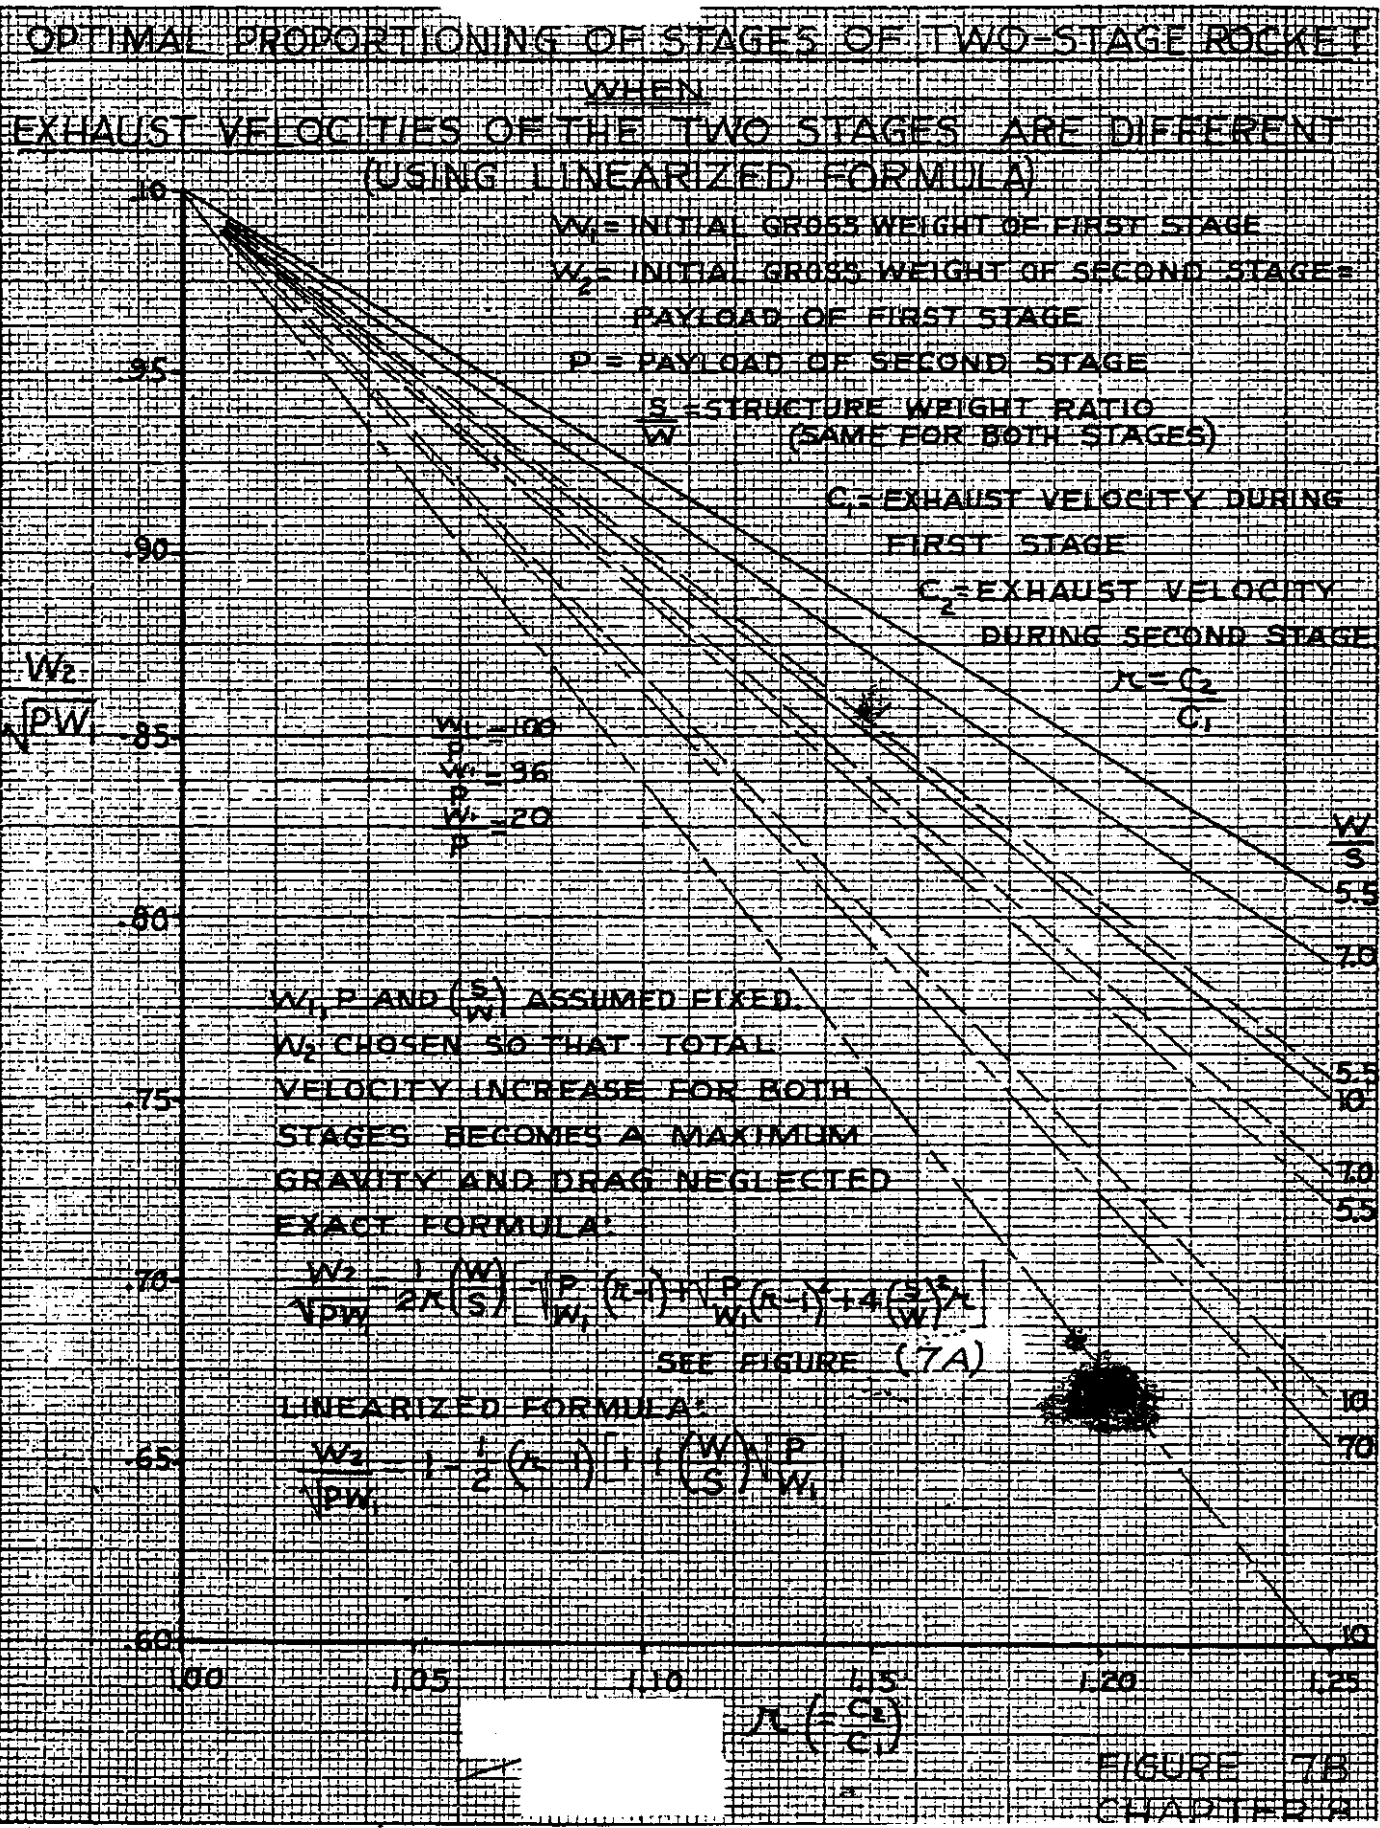 OPTIMAL PROPORTIONING OF STAGES OF TWO-STAGE ROCKET
WHEN
EXHAUST VELOCITIES OF THE TWO STAGES ARE DIFFERENT
(USING LINEARIZED FORMULA)
W₁ = INITIAL GROSS WEIGHT OF FIRST STAGE
W₂ = INITIAL GROSS WEIGHT OF SECOND STAGE =
PAYLOAD OF FIRST STAGE
P = PAYLOAD OF SECOND STAGE
S/W = STRUCTURE WEIGHT RATIO
(SAME FOR BOTH STAGES)
C₁ = EXHAUST VELOCITY DURING
FIRST STAGE
C₂ = EXHAUST VELOCITY
DURING SECOND STAGE
r = C₂/C₁
.10
.95
.90
.85
.80
.75
.70
.65
.60
W₂/√PW₁
W₁/P = 100
W₁/P = 36
W₁/P = 20
W/S
5.5
7.0
5.5
10
7.0
5.5
10
70
10
W₁, P AND (S/W) ASSUMED FIXED.
W₂ CHOSEN SO THAT TOTAL
VELOCITY INCREASE FOR BOTH
STAGES BECOMES A MAXIMUM
GRAVITY AND DRAG NEGLECTED
EXACT FORMULA:
W₂/√PW₁ = 1/2r (W/S) [-√P/W₁ (r-1) + √P/W₁ (r-1)² + 4(S/W)² r]
SEE FIGURE (7A)
LINEARIZED FORMULA:
W₂/√PW₁ = 1 - 1/2 (r-1) [1 + (W/S) √P/W₁]
1.00 1.05 1.10 1.15 1.20 1.25
r (= C₂/C₁)
FIGURE 7B
CHAPTER 8